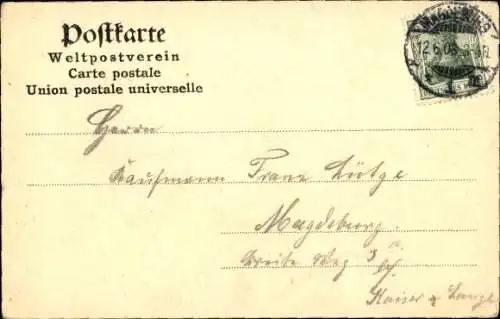 Postkarte
Weltpostverein
Carte postale
Union postale universelle
MAGDEBURG
12.6.05
Herrn
Kaufmann Franz Lütge
Magdeburg
Breite Weg 3 a.
b/
Kaiser & Lange